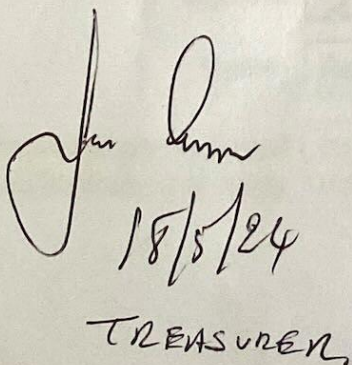 18/5/24
TREASURER